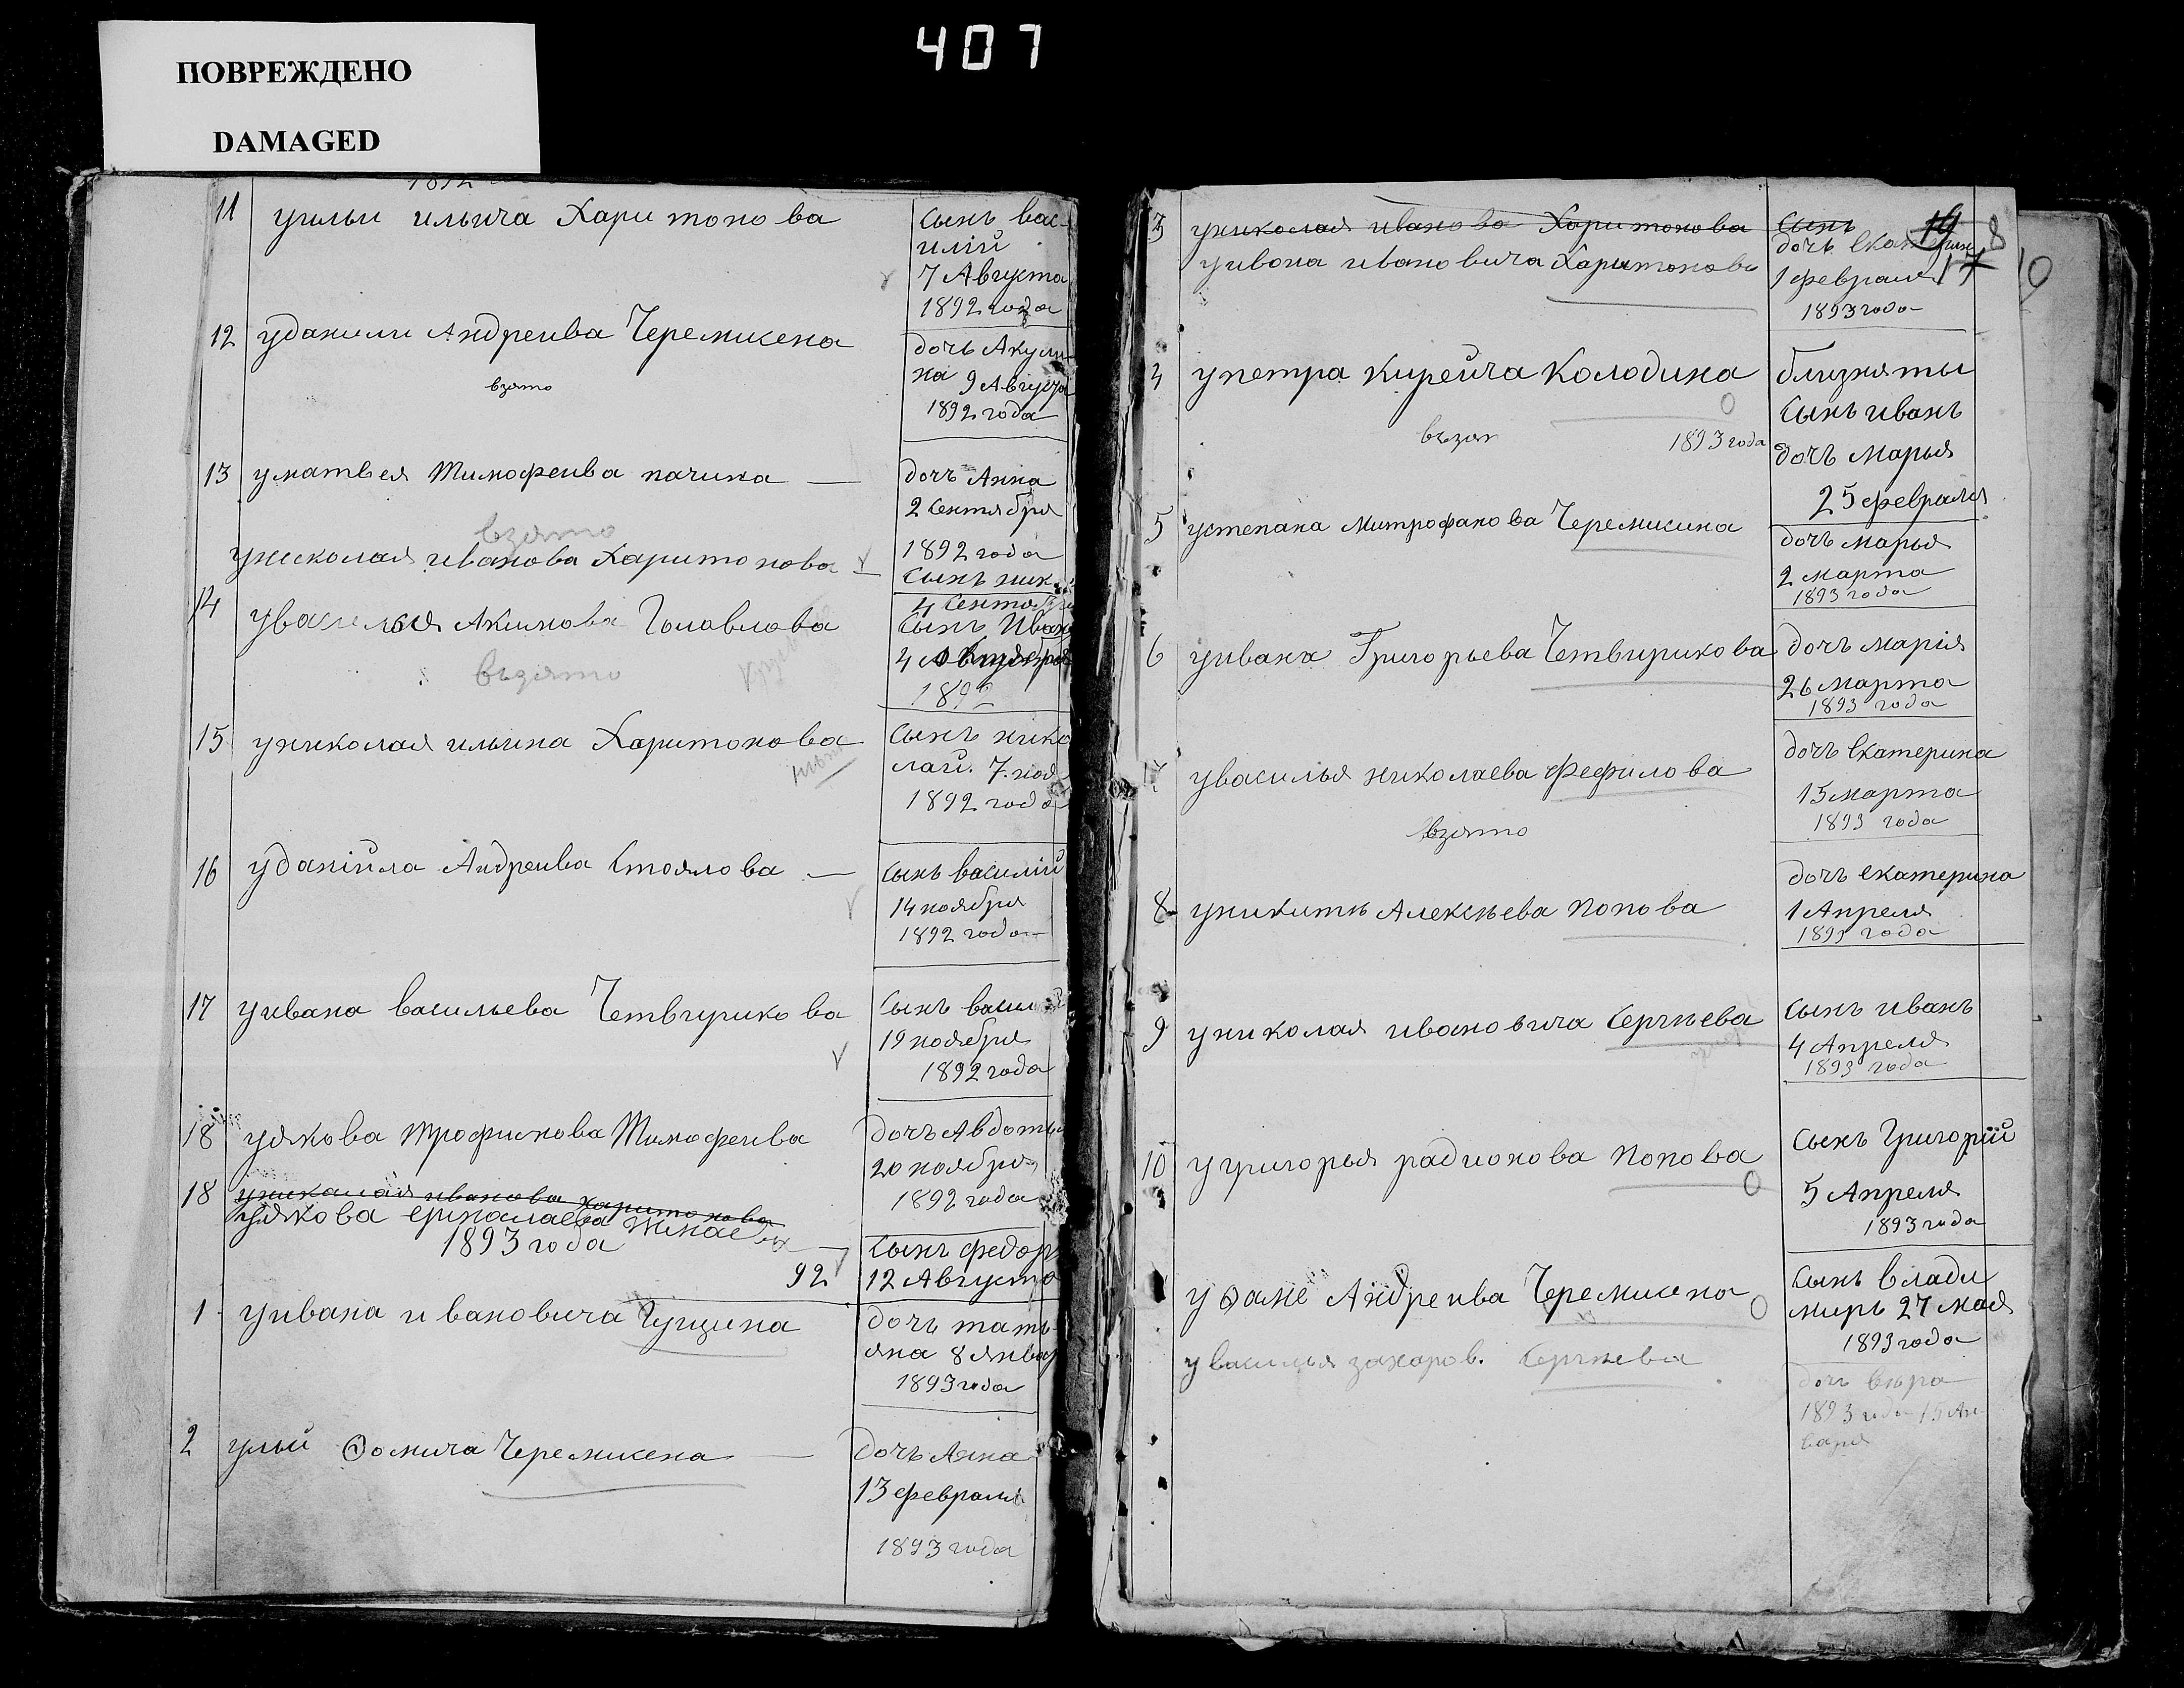 ПОВРЕЖДЕНО
DAMAGED
407
11 уильи ильича Харитонова
сынъ вас-
илiй
7 Августа
1892 года
12 уданили Андреива Черемисена
взято
дочь Акули
на 9 Августа
1892 года
13 уматвея Тимофеива пачина
дочъ Анна
2 сентября
1892 года
взято
униколая иванова Харитонова
сынъ ник
4 сентября
14 увасилья Акимова Головлова
сынъ Иван
4
1892
възято
15 униколая ильина Харитонова
сынъ нико
лай. 7. ноя
1892 года
16 уданiйла Андреива Стоялова
сынъ василiй
14 ноября
1892 года
17 уивана васильева Четвирикова
сынъ васи
19 ноября
1892 года
18 уякова трофимова Тимофеива
дочъ Авдоть
20 ноября
1892 года
18 униколая иванова харитонова
уякова
1893 года
92
сынъ федор
12 Августа
1 уивана ивановича Чущина
дочь тать
яна 8 январ
1893 года
2 Ѳомича Черемисена
дочъ Анна
13 февраля
1893 года
19 8
17
3 униколая иванова Харитонова
сынъ
уивона ивановича Харитонова
дочь Екатерин
1 февраля
1893 года
4 упетра кирейча Колодина
възят
1893 года
близняты
сынъ иванъ
дочъ марья
25 февраля
5 устепана митрофанова Черемисина
дочь марья
2 марта
1893 года
6 уивана Григорьева Четвирикова
дочъ марiя
26 марта
1893 года
7 увасилья николаева Фефилова
взято
дочъ екатерина
15 марта
1893 года
8 уникиты Алексѣева Попова
дочъ екатерина
1 Апреля
1893 года
9 униколая ивановича Сергѣева
сынъ иванъ
4 Апреля
1893 года
10 угригорья радионова Попова
сынъ Григорiй
5 Апреля
1893 года
Андреива Черемисена
сынъ влади
миръ 27 мая
1893 года
увасилья захаров. Сергѣева
дочъ вѣра
1893 года 15 Ян
варя